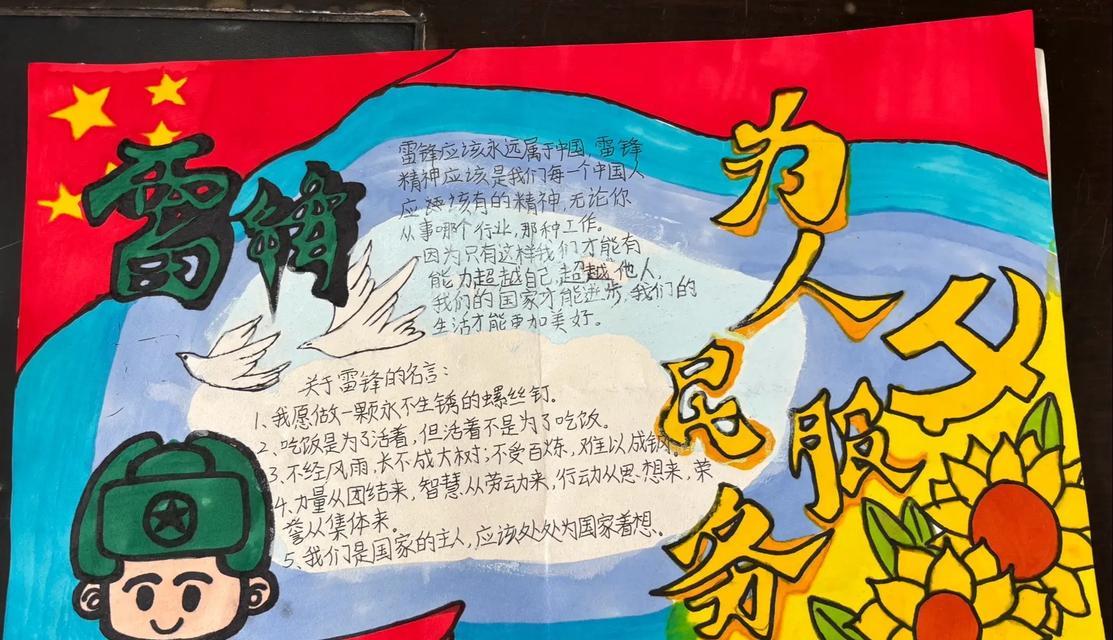 雷锋
雷锋应该永远属于中国,雷锋
精神应该是我们每一个中国人
应该有的精神,无论你
从事哪个行业,那种工作。
因为只有这样我们才能有
能力超越自己,超越他人,
我们的国家才能进步,我们的
生活才能更加美好。
关于雷锋的名言:
1、我愿做一颗永不生锈的螺丝钉。
2、吃饭是为了活着,但活着不是为了吃饭。
3、不经风雨,长不成大树;不受百炼,难以成钢。
4、力量从团结来,智慧从劳动来,行动从思想来,荣
誉从集体来。
5、我们是国家的主人,应该处处为国家着想。
为人民服务